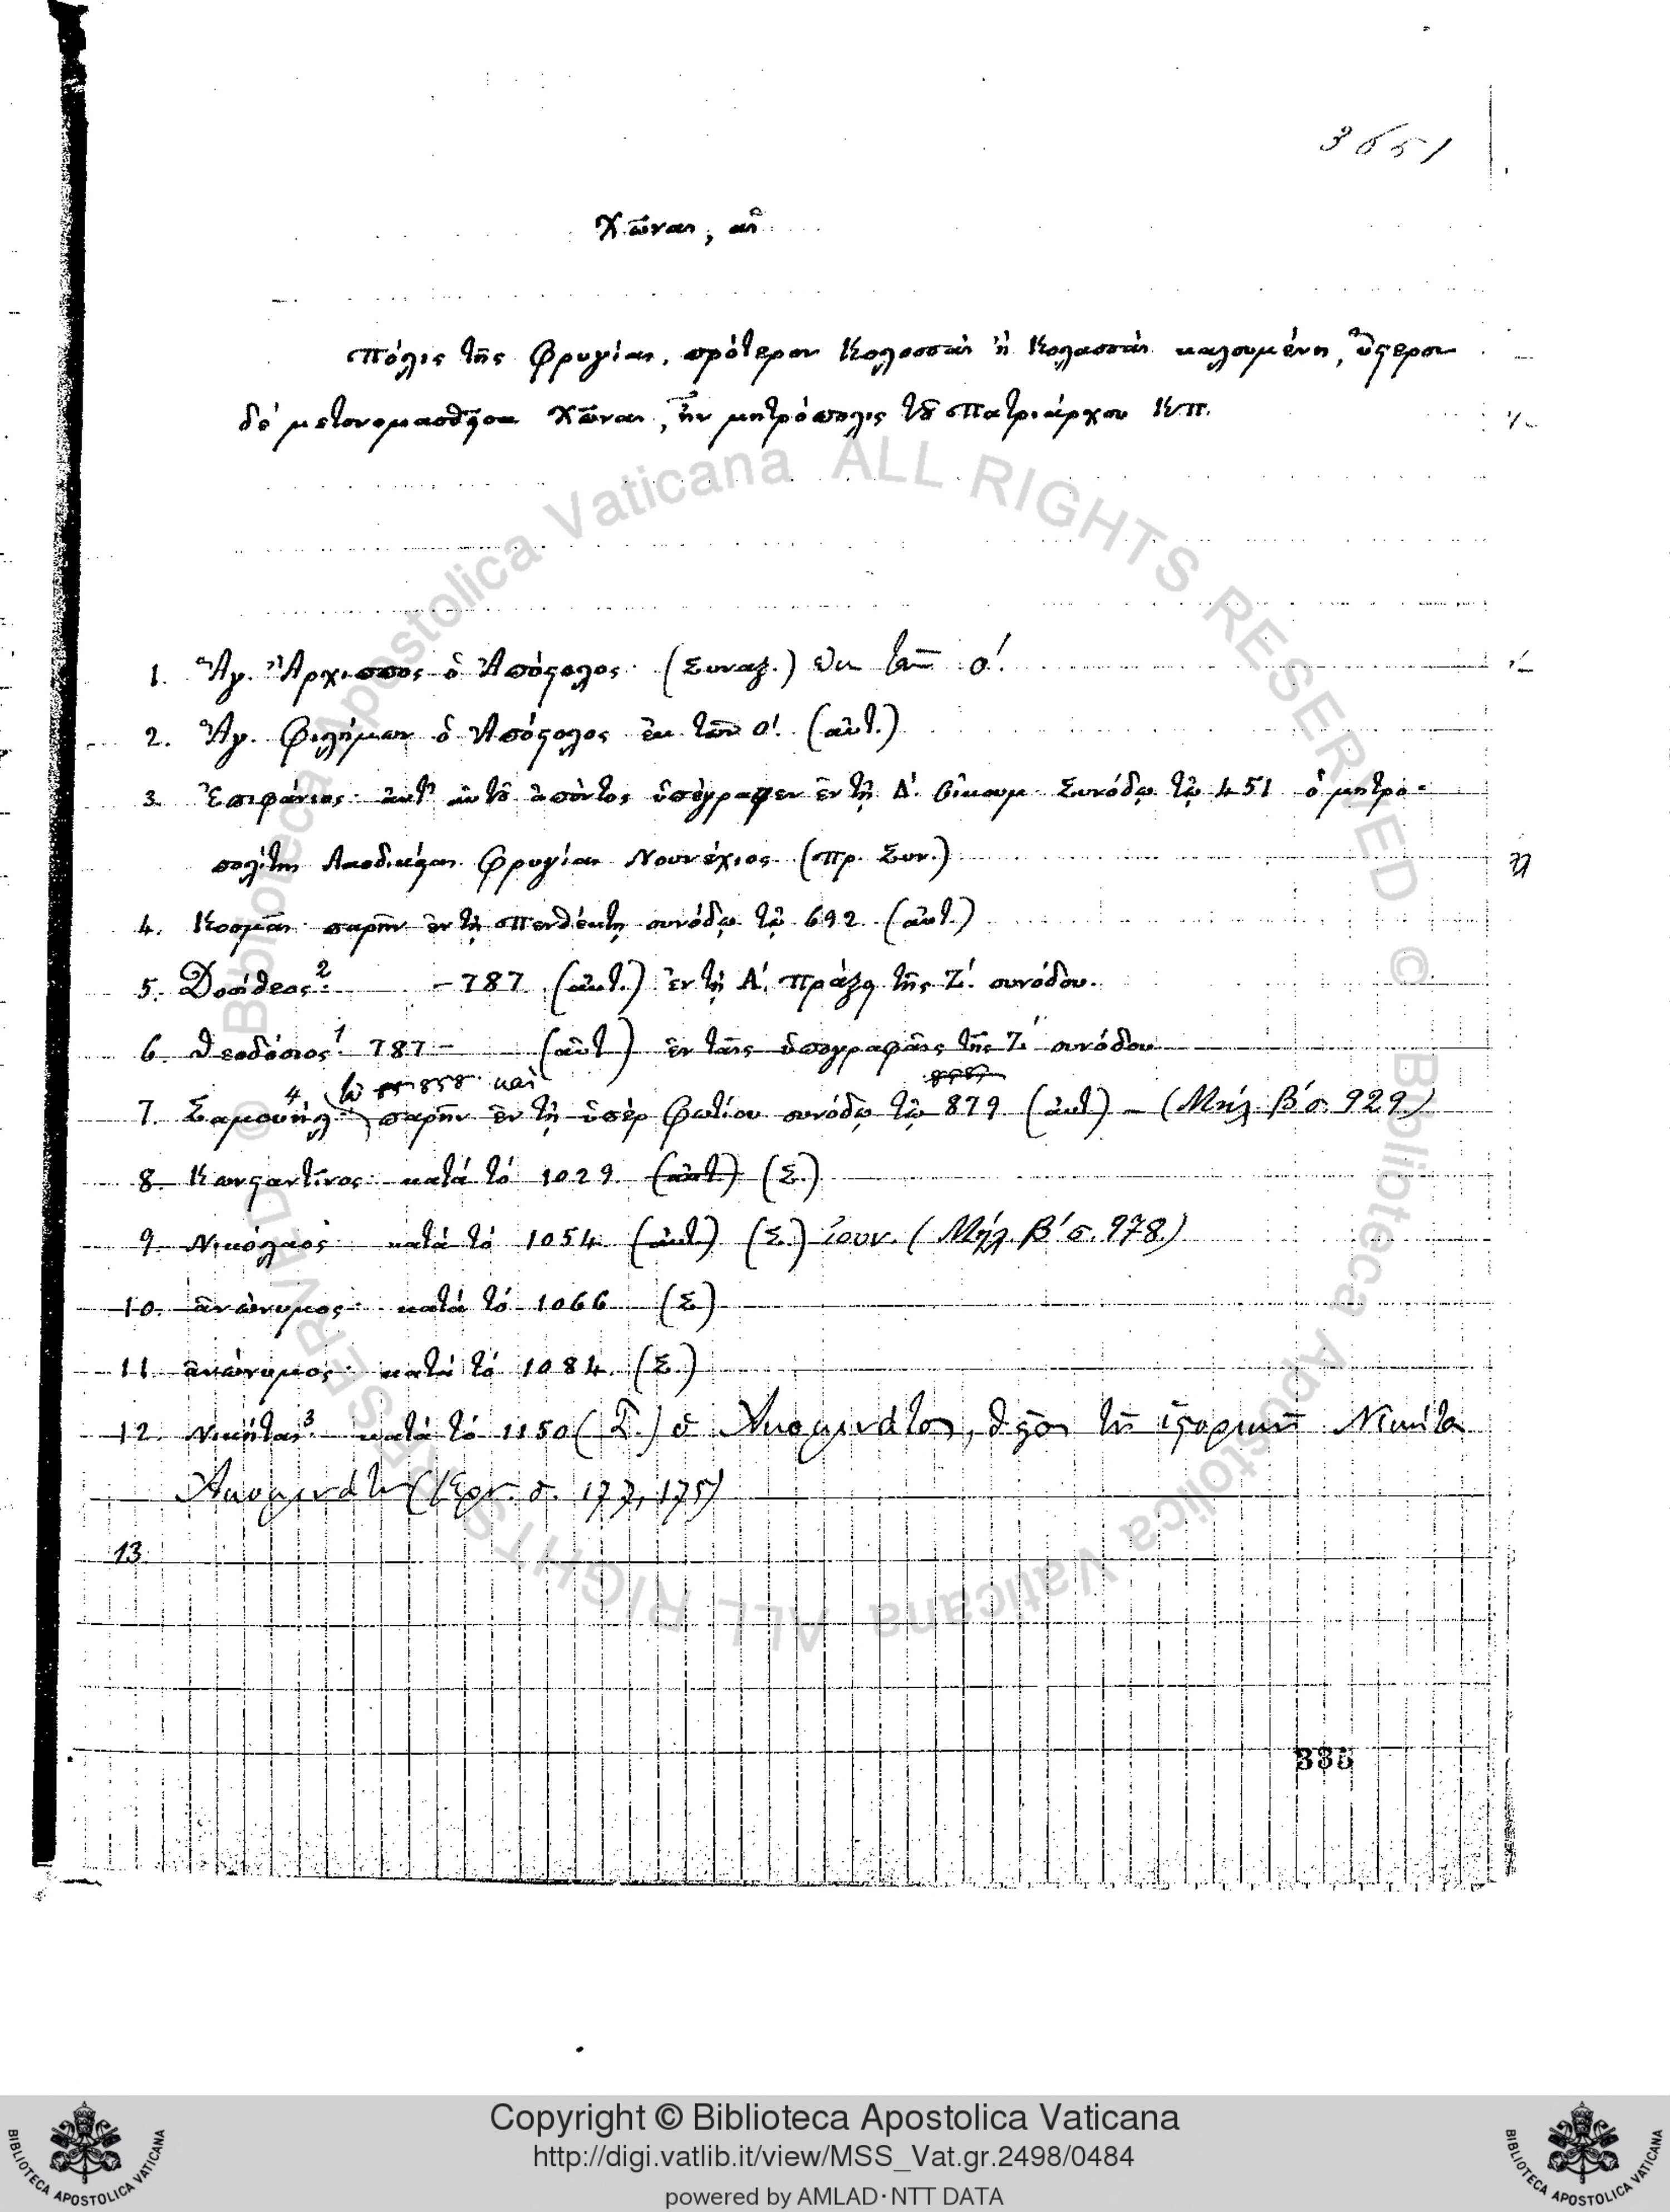 3651
Χῶναι, αἱ
Πόλις τῆς Φρυγίας, πρότερον Κολοσσαὶ ἢ Κολασσαὶ καλουμένη, ὕστερον
δὲ μετονομασθεῖσα Χῶναι, ἦν μητρόπολις τοῦ Πατριάρχου Κπ.
1. Ἅγ. Ἄρχιππος ὁ Ἀπόστολος (Συναξ.) ἐκ τῶν ο΄.
2. Ἅγ. Φιλήμων ὁ Ἀπόστολος ἐκ τῶν ο΄. (αὐτ.)
3. Ἐπιφάνιος· ἀντ' αὐτοῦ ἀπόντος ὑπέγραψεν ἐν τῇ Δ΄. Οἰκουμ. Συνόδῳ τῷ 451 ὁ μητρο-
πολίτης Λαοδικείας Φρυγίας Νουνέχιος (πρ. Συν.)
4. Κοσμᾶς· παρῆν ἐν τῇ Πενθέκτῃ συνόδῳ τῷ 692. (αὐτ.)
5. Δοσίθεος² –787 (αὐτ.) ἐν τῇ Α΄. Πράξει τῆς Ζ΄. συνόδου.
6. Θεοδόσιος¹ 787– (αὐτ) ἐν ταῖς ὑπογραφαῖς τῆς Ζ΄ συνόδου
τῷ 858 καὶ
7. Σαμουήλ⁴· παρῆν ἐν τῇ ὑπὲρ Φωτίου συνόδῳ τῷ 879 (αὐτ) – (Μήλ. β΄ σ. 929)
8. Κωνσταντῖνος· κατὰ τὸ 1029. (αὐτ.) (Σ.)
9. Νικόλαος· κατὰ τὸ 1054 (αὐτ) (Σ.) ἰουν. (Μήλ. β΄ σ. 978)
10. ἀνώνυμος· κατὰ τὸ 1066 (Σ)
11. ἀνώνυμος· κατὰ τὸ 1084. (Σ.)
12. Νικήτας³· κατὰ τὸ 1150 (Σ.) ὁ Ἀκομινάτος, θεῖος τοῦ ἱστορικοῦ Νικήτα
Ἀκομινάτου (σ. 177, 175)
13.
335
Copyright © Biblioteca Apostolica Vaticana
http://digi.vatlib.it/view/MSS_Vat.gr.2498/0484
powered by AMLAD·NTT DATA
BIBLIOTECA APOSTOLICA VATICANA
BIBLIOTECA APOSTOLICA VATICANA
© Biblioteca Apostolica Vaticana ALL RIGHTS RESERVED
© Biblioteca Apostolica Vaticana ALL RIGHTS RESERVED